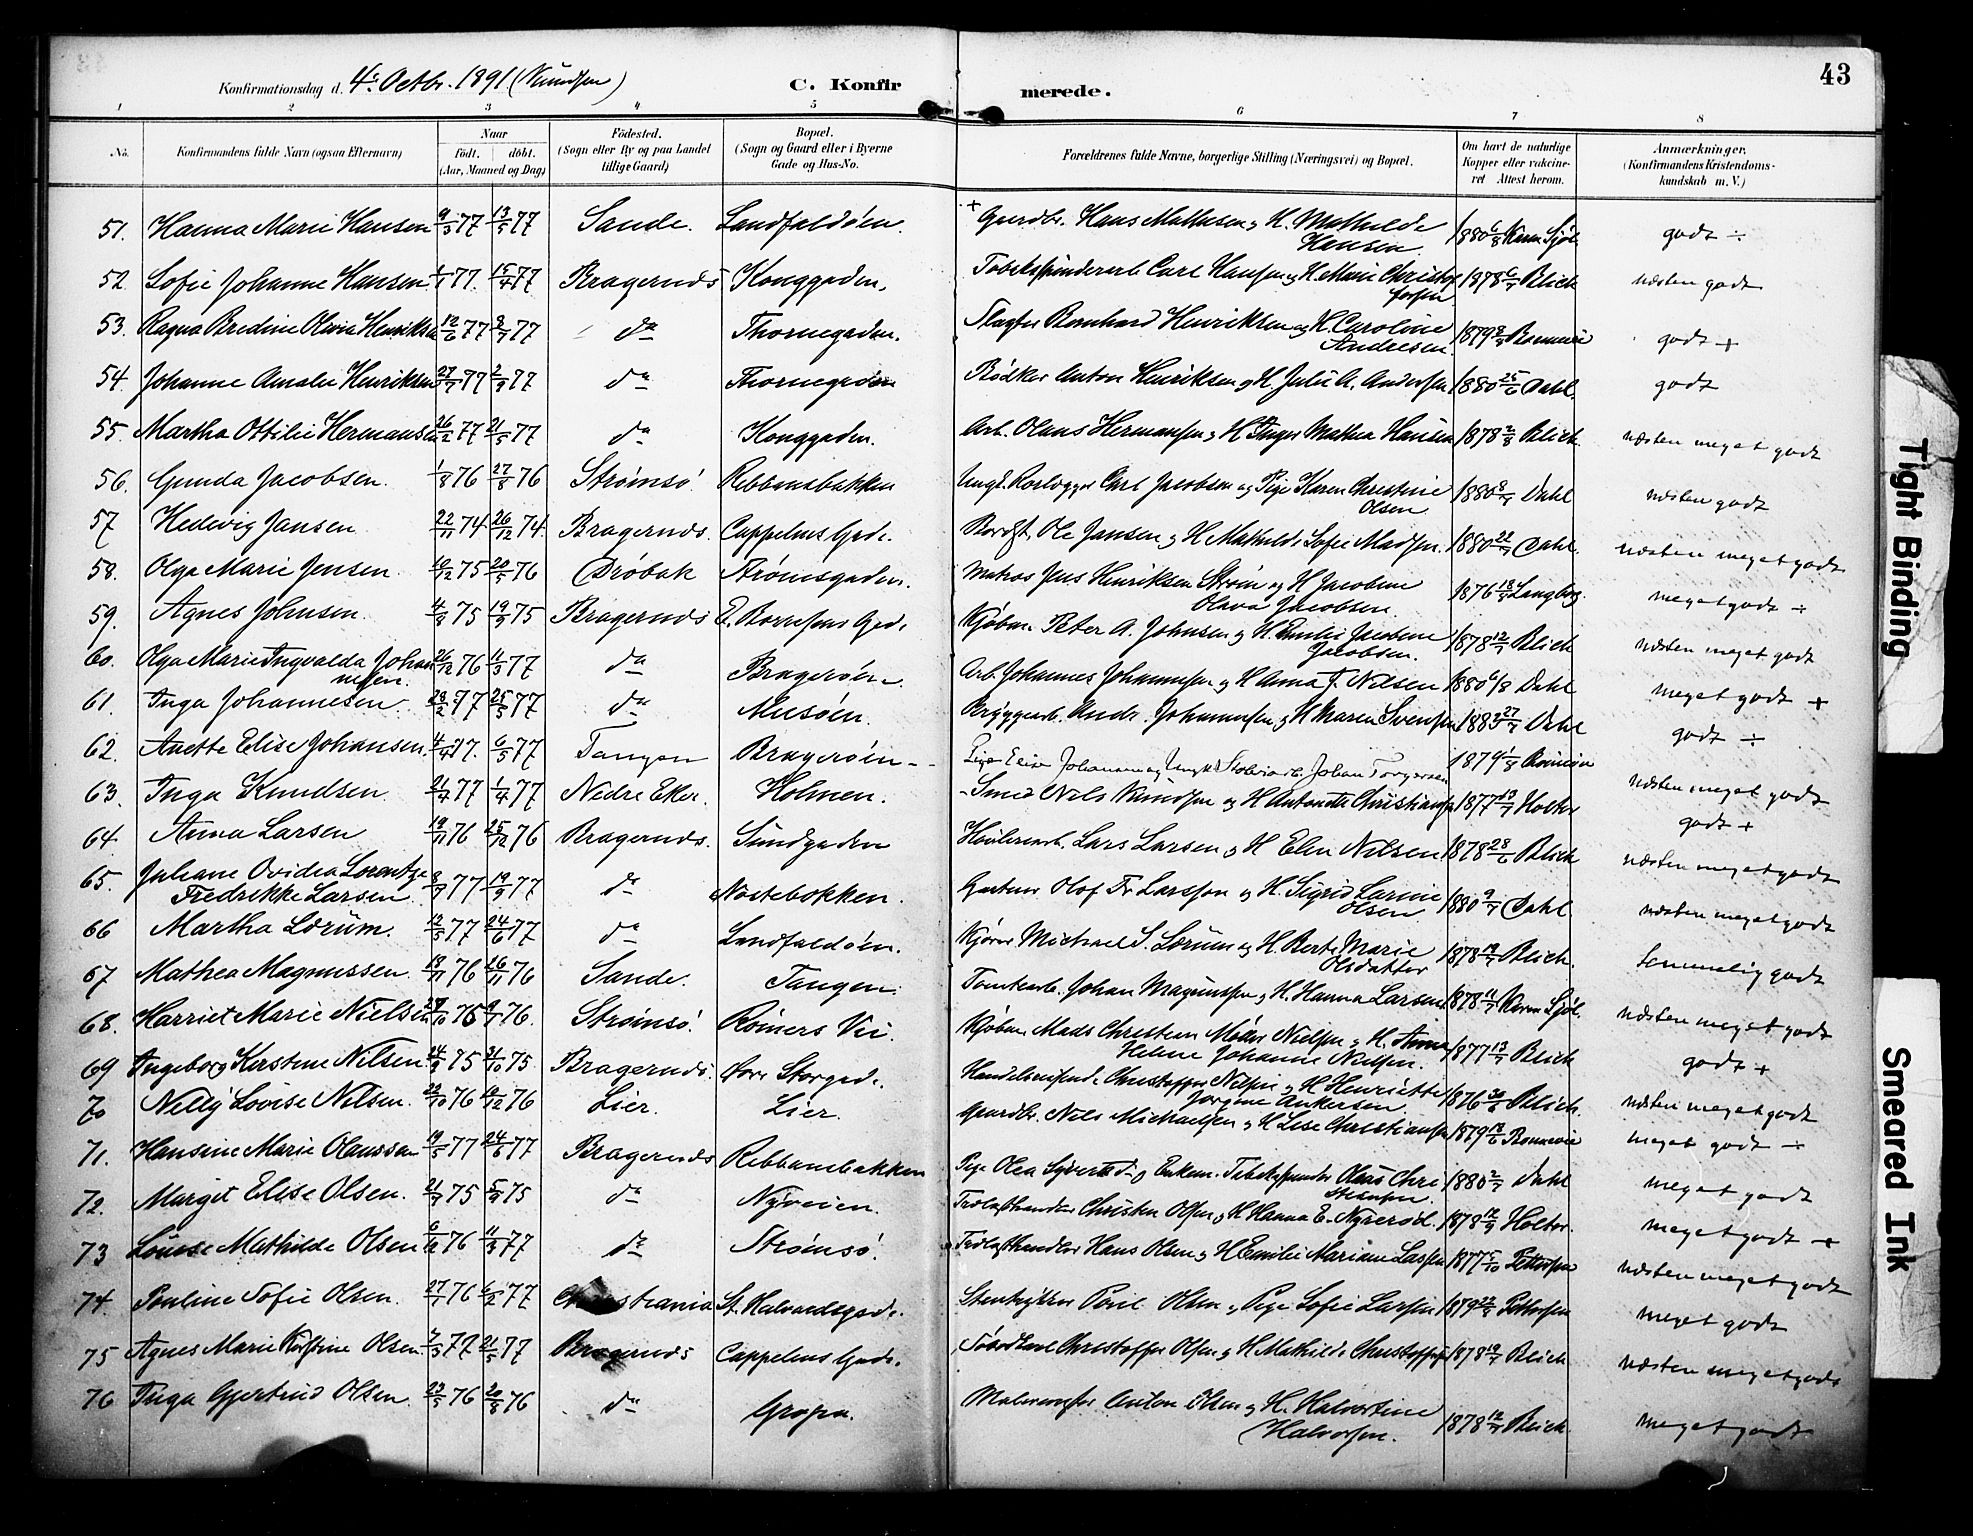 43
Konfirmationsdag d. 4de Octbr. 1891 (Knudsen) C. Konfirmerede.
1 2 3 4 5 6 7 8
No. Konfirmandens fulde Navn (ogsaa Efternavn) Naar födt. döbt. (Aar, Maaned og Dag) Födested. (Sogn eller By og paa Landet tillige Gaard) Bopæl. (Sogn og Gaard eller i Byerne Gade og Hus-No. Forældrenes fulde Navne, borgerlige Stilling (Næringsvei) og Bopæl. Om havt de naturlige Kopper eller vaccineret Attest herom. Anmærkninger, (Konfirmandens Kristendomskundskab m. V.)
51. Hanna Marie Hansen 9/3 77 13/5 77 Sande. Landfaldöen. + Gaardbr. Hans Mathisen og H. Mathilde Hansen 1880 6/8 Karen Sjöl. godt ÷
52. Sofie Johanne Hansen 77. 15/4 77 Bragernæs Konggaden. Tobaksspinderarb. Carl Hansen og H. Marie Christofersen 1878 6/7 Blich næsten godt
53. Ragna Bredine Olivia Henriksen 12/6 77 77 da Thornegaden. Slagter Bernhard Henriksen og H. Caroline Andresen 1879 Bonnevie godt +
54. Johanne Amalie Henriksen 27/7 77 2/9 77 da Thornegaden Bödker Anton Henriksen og H. Julie A. Andersen 1880 25/6 Dahl. godt
55. Martha Ottilie Hermansen 26/2 77 21/5 77 da Konggaden. Arb. Olaus Hermansen og H. Inger Mathea Hansen 1878 2/8 Blich næsten meget godt
56. Gunda Jacobsen. 1/8 76 27/8 76 Strömsö. Rebbansbakken Ungk. Carl Jacobsen og Pige Karen Christine Olsen 1880 Dahl næsten godt
57 Hedevig Jansen 22/11 74 26/12 74. Bragernæs. Cappelens Gade. Ole Jansen og H Mathilde Sofie Madsen. 1880 Dahl. næsten meget godt
58. Olga Marie Jensen 10/12 75 20/5 76 Dröbak Strömsgaden. Matros Jens Henriksen Ström og H Jacobine Olava Jacobsen 1876 18/8 Langberg. meget godt ÷
59. Agnes Johnsen. 75 19/9 75 Bragernæs E. Borresens Gade Kjöbm. Peter A. Johnsen og H. Emilie Jacobine Jacobsen. 1878 12/7 Blich næsten meget godt
60. Olga Marie Ingvalda Johannesen. 26/12 76 11/3 77 da Bragerøen. Arb. Johannes Johannesen og H Anna F. Nilsen 1880 6/8 Dahl meget godt +
61. Inga Johannesen 28/2 77 25/5 77 da Musöen. Andr. Johannesen og H Maren Svensen 1883 27/7 Dahl godt ÷
62. Anette Elise Johansen. 4/4 77. 6/5 77 Tangen Bragerøen Pige Elise Johansen og Ungk. Johan Torgersen 1879 1/8 Bonnevie næsten meget godt
63. Inga Knudsen 77 1/4 77 Nedre Eker. Holmen. Smed Nils Knudsen og H Antonette Christiansen 1877 13/7 Holter godt +
64. Anna Larsen 19/11 76 25/12 76 Bragernæs. Sundgaden Hövleriarb. Lars Larsen og H Elen Nilsen 1878 28/6 Blich næsten meget godt
65. Juliane Ovidea Lorentze Fredrikke Larsen 8/7 77 19/9 77 da Nöstebakken. Gartner Olof Fr. Larsson og H. Sigrid Larine Olsen 1880 9/7 Dahl næsten meget godt
66 Martha Lørum. 12/5 77 24/6 77 da Landfaldöen. Kjörer Michael S. Lørum og H. Berte Marie Olsdatter 1878 Blich. temmelig godt
67 Mathea Magnussen. 18/11 76 26/11 76 Sande. Tangen. Tomtearb. Johan Magnussen og H. Hanna Larsen 1878 11/7 Karen Sjöl. næsten meget godt
68. Harriet Marie Nielsen 76 76. Strömsö. Römers Vei. Kjöbm Mads Christian Möller Nielsen og H. Anna Helene Johanne Nielsen. 1877 13/7 Blich godt +
69 Ingeborg Kirstine Nilsen 24/9 75 31/10 75. Bragernæs. Övre Storgade. Handelsreisende Christoffer Nilsen og H Henriette Jörgine Ankersen 1876 Blich. næsten meget godt
70 Nelly Lovise Nilsen. 22/10 76 76 Lier. Lier. Gaardbr. Nils Michaelsen og H Lise Christiansen 1879 Bonnevie meget godt ÷
71. Hansine Marie Olaussen 19/5 77 24/6 77 Bragernæs Rebbansbakken Pige Olea Syvertsd. og Enkem. Tobaksspinder Olaus Christiansen 1880 2/7 Dahl meget godt
72. Margit Elise Olsen. 75 5/9 75 da Nyveien. Trælasthandler Christen Olsen og H Hanna E. Nyseröd. 1878 12/9 Holter. meget godt +
73 Louise Mathilde Olsen 6/12 76 11/3 77 da Strömsö. Trælasthandler Hans Olsen og H Emilie Mariane Larsen 1877 5/10 Pettersen næsten meget godt
74. Pauline Sofie Olsen. 76 6/2 77 Christiania St. Halvardsgade. Stenhugger Paul Olsen og Pige Sofie Larsen 1879 Pettersen meget godt
75 Agnes Marie Kirstine Olsen. 77 21/5 77 Bragernæs Cappelens Gade. Christoffer Olsen og H Mathilde Christoffersen 1878 19/7 Blich næsten meget godt
76 Inga Gjertrud Olsen. 23/5 76 20/8 76 da Gropa. Malermester Anton Olsen og H. Halvardine Halvorsen. 1878 12/7 Blich meget godt
Tight Binding
Smeared Ink